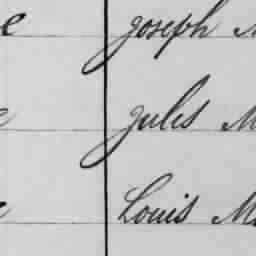 e Joseph M
Jules M
Louis M